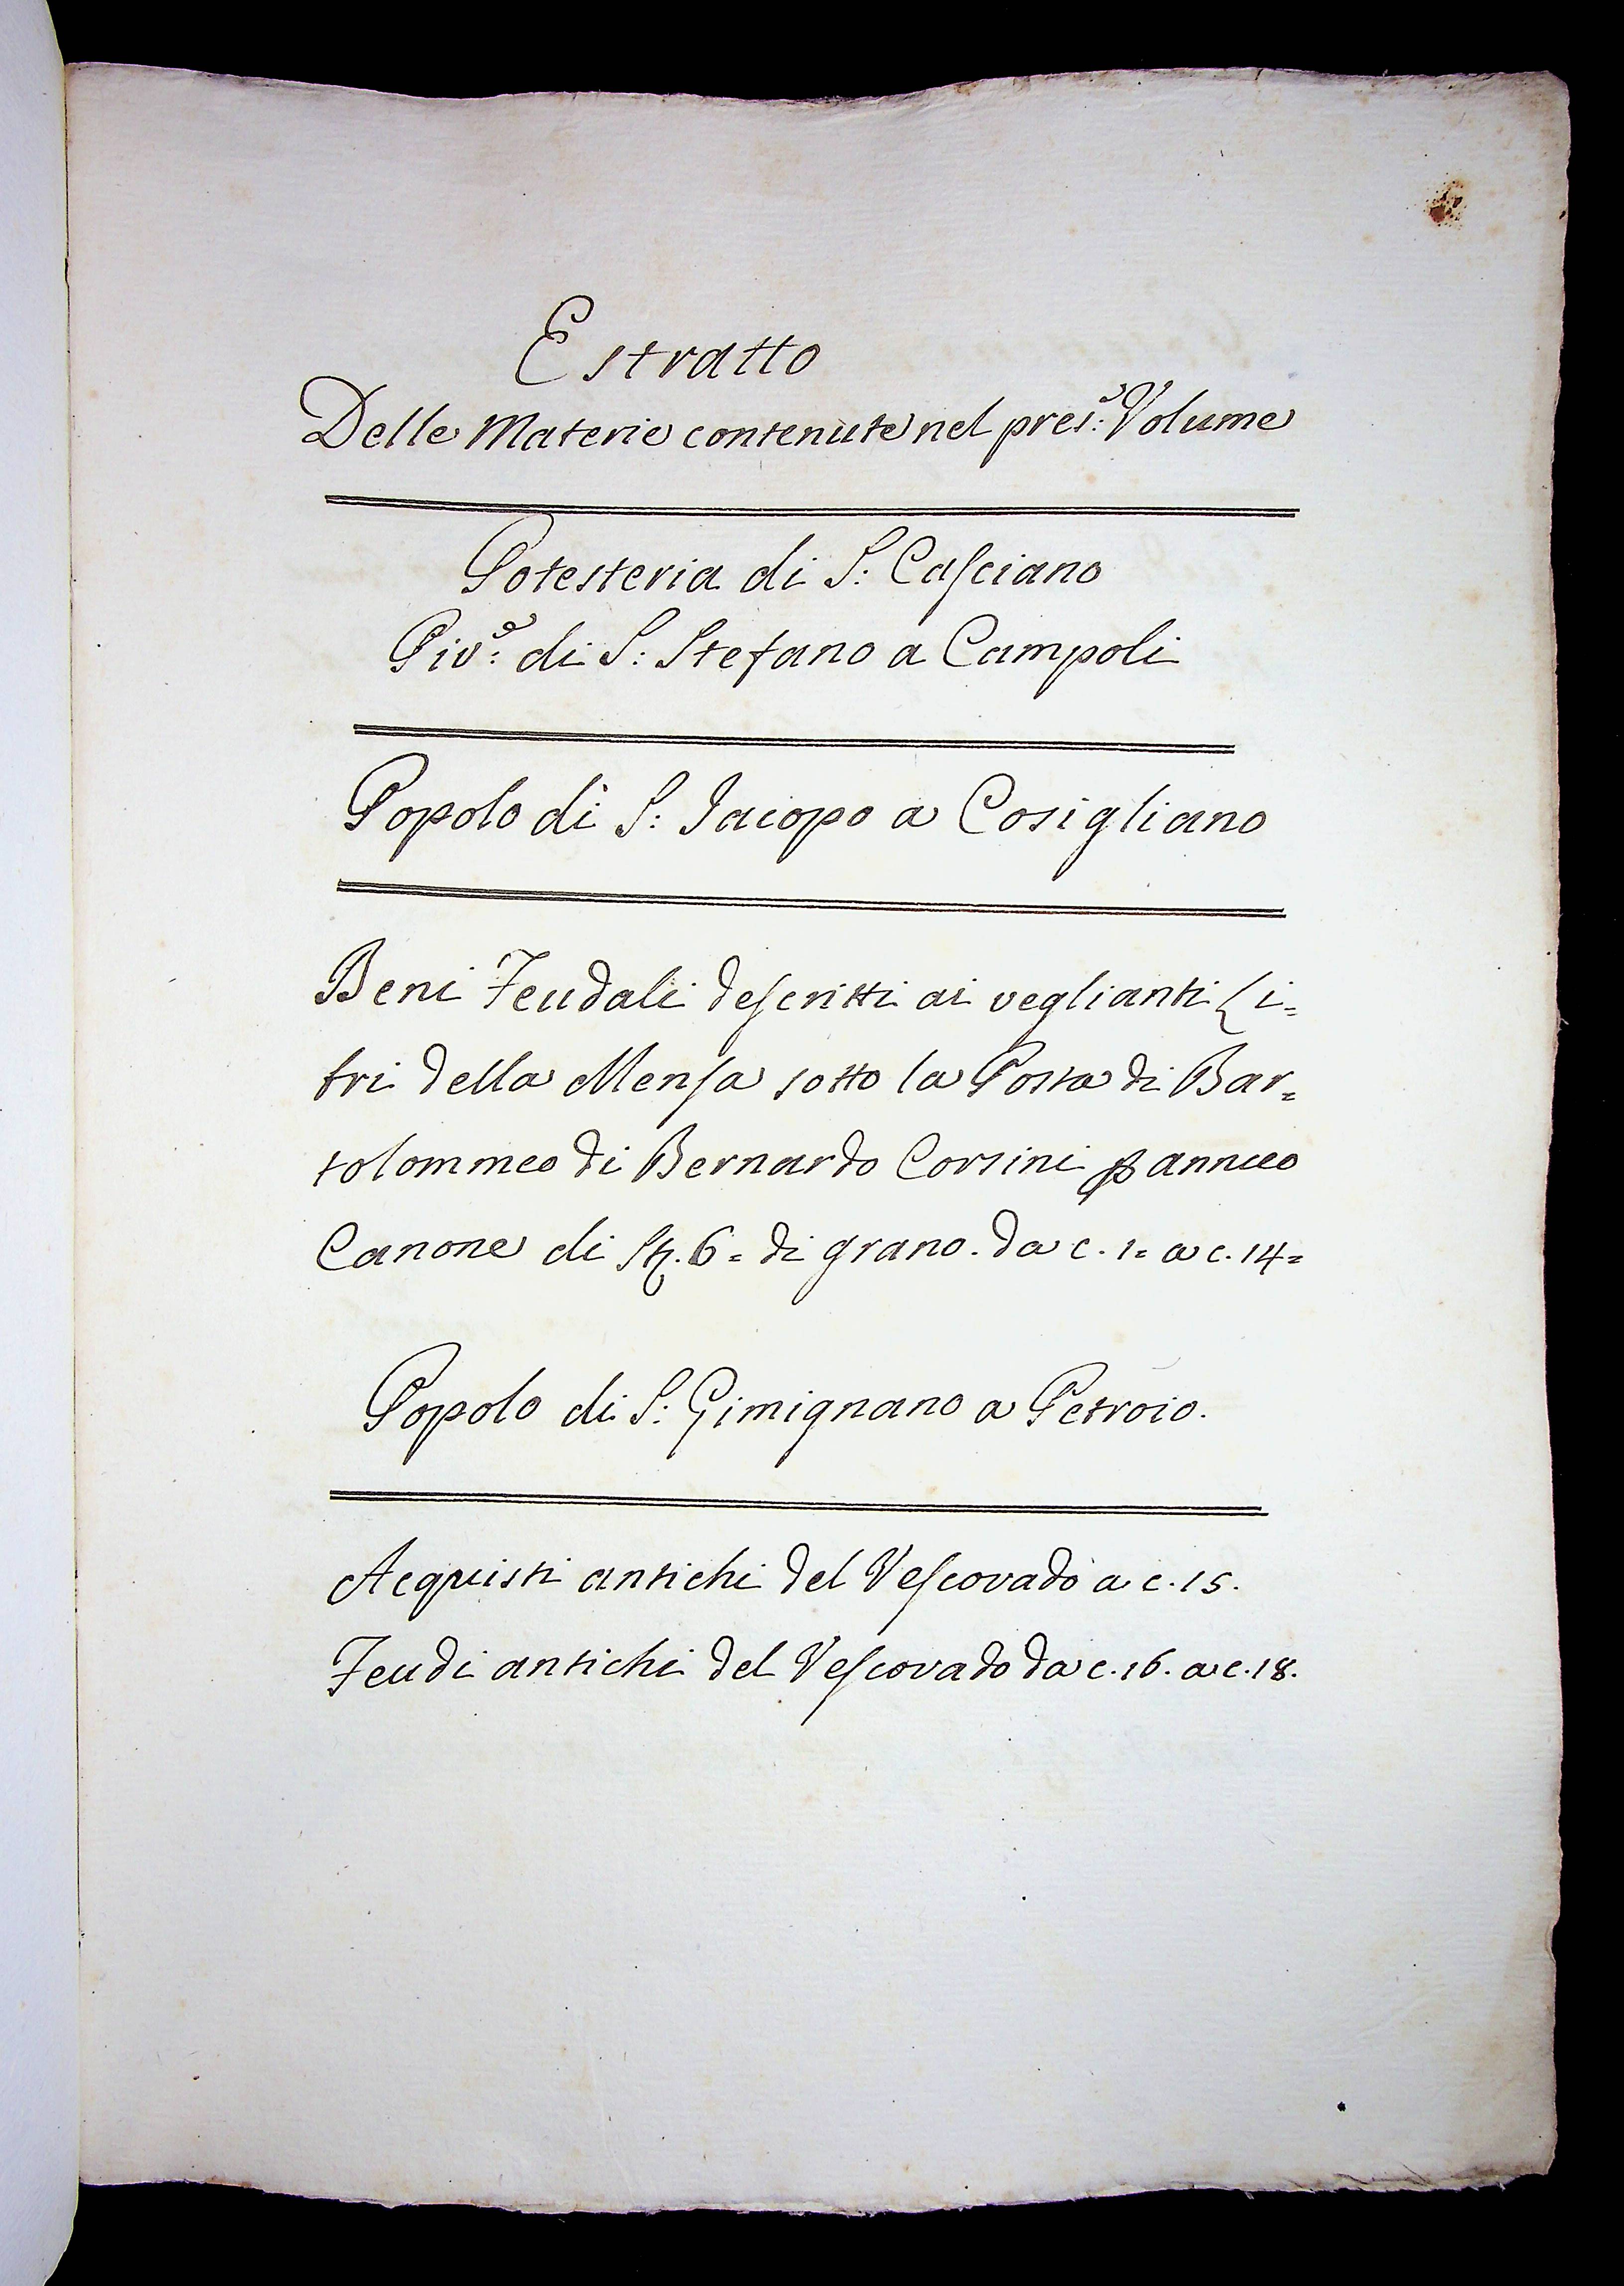 Estratto
Delle Materie contenute nel pres:e Volume
Potesteria di S: Casciano
Piv:e di S: Stefano a Campoli
Popolo di S: Jacopo a Cosigliano
Beni Feudali descritti ai veglianti Li=
bri della Mensa sotto la Posta di Bar=
tolommeo di Bernardo Corsini p annuo
Canone di St. 6= di grano. da c. 1= a c. 14=
Popolo di S: Gimignano a Petroio.
Acquisti antichi del Vescovado a c. 15.
Feudi antichi del Vescovado da c. 16. a c. 18.